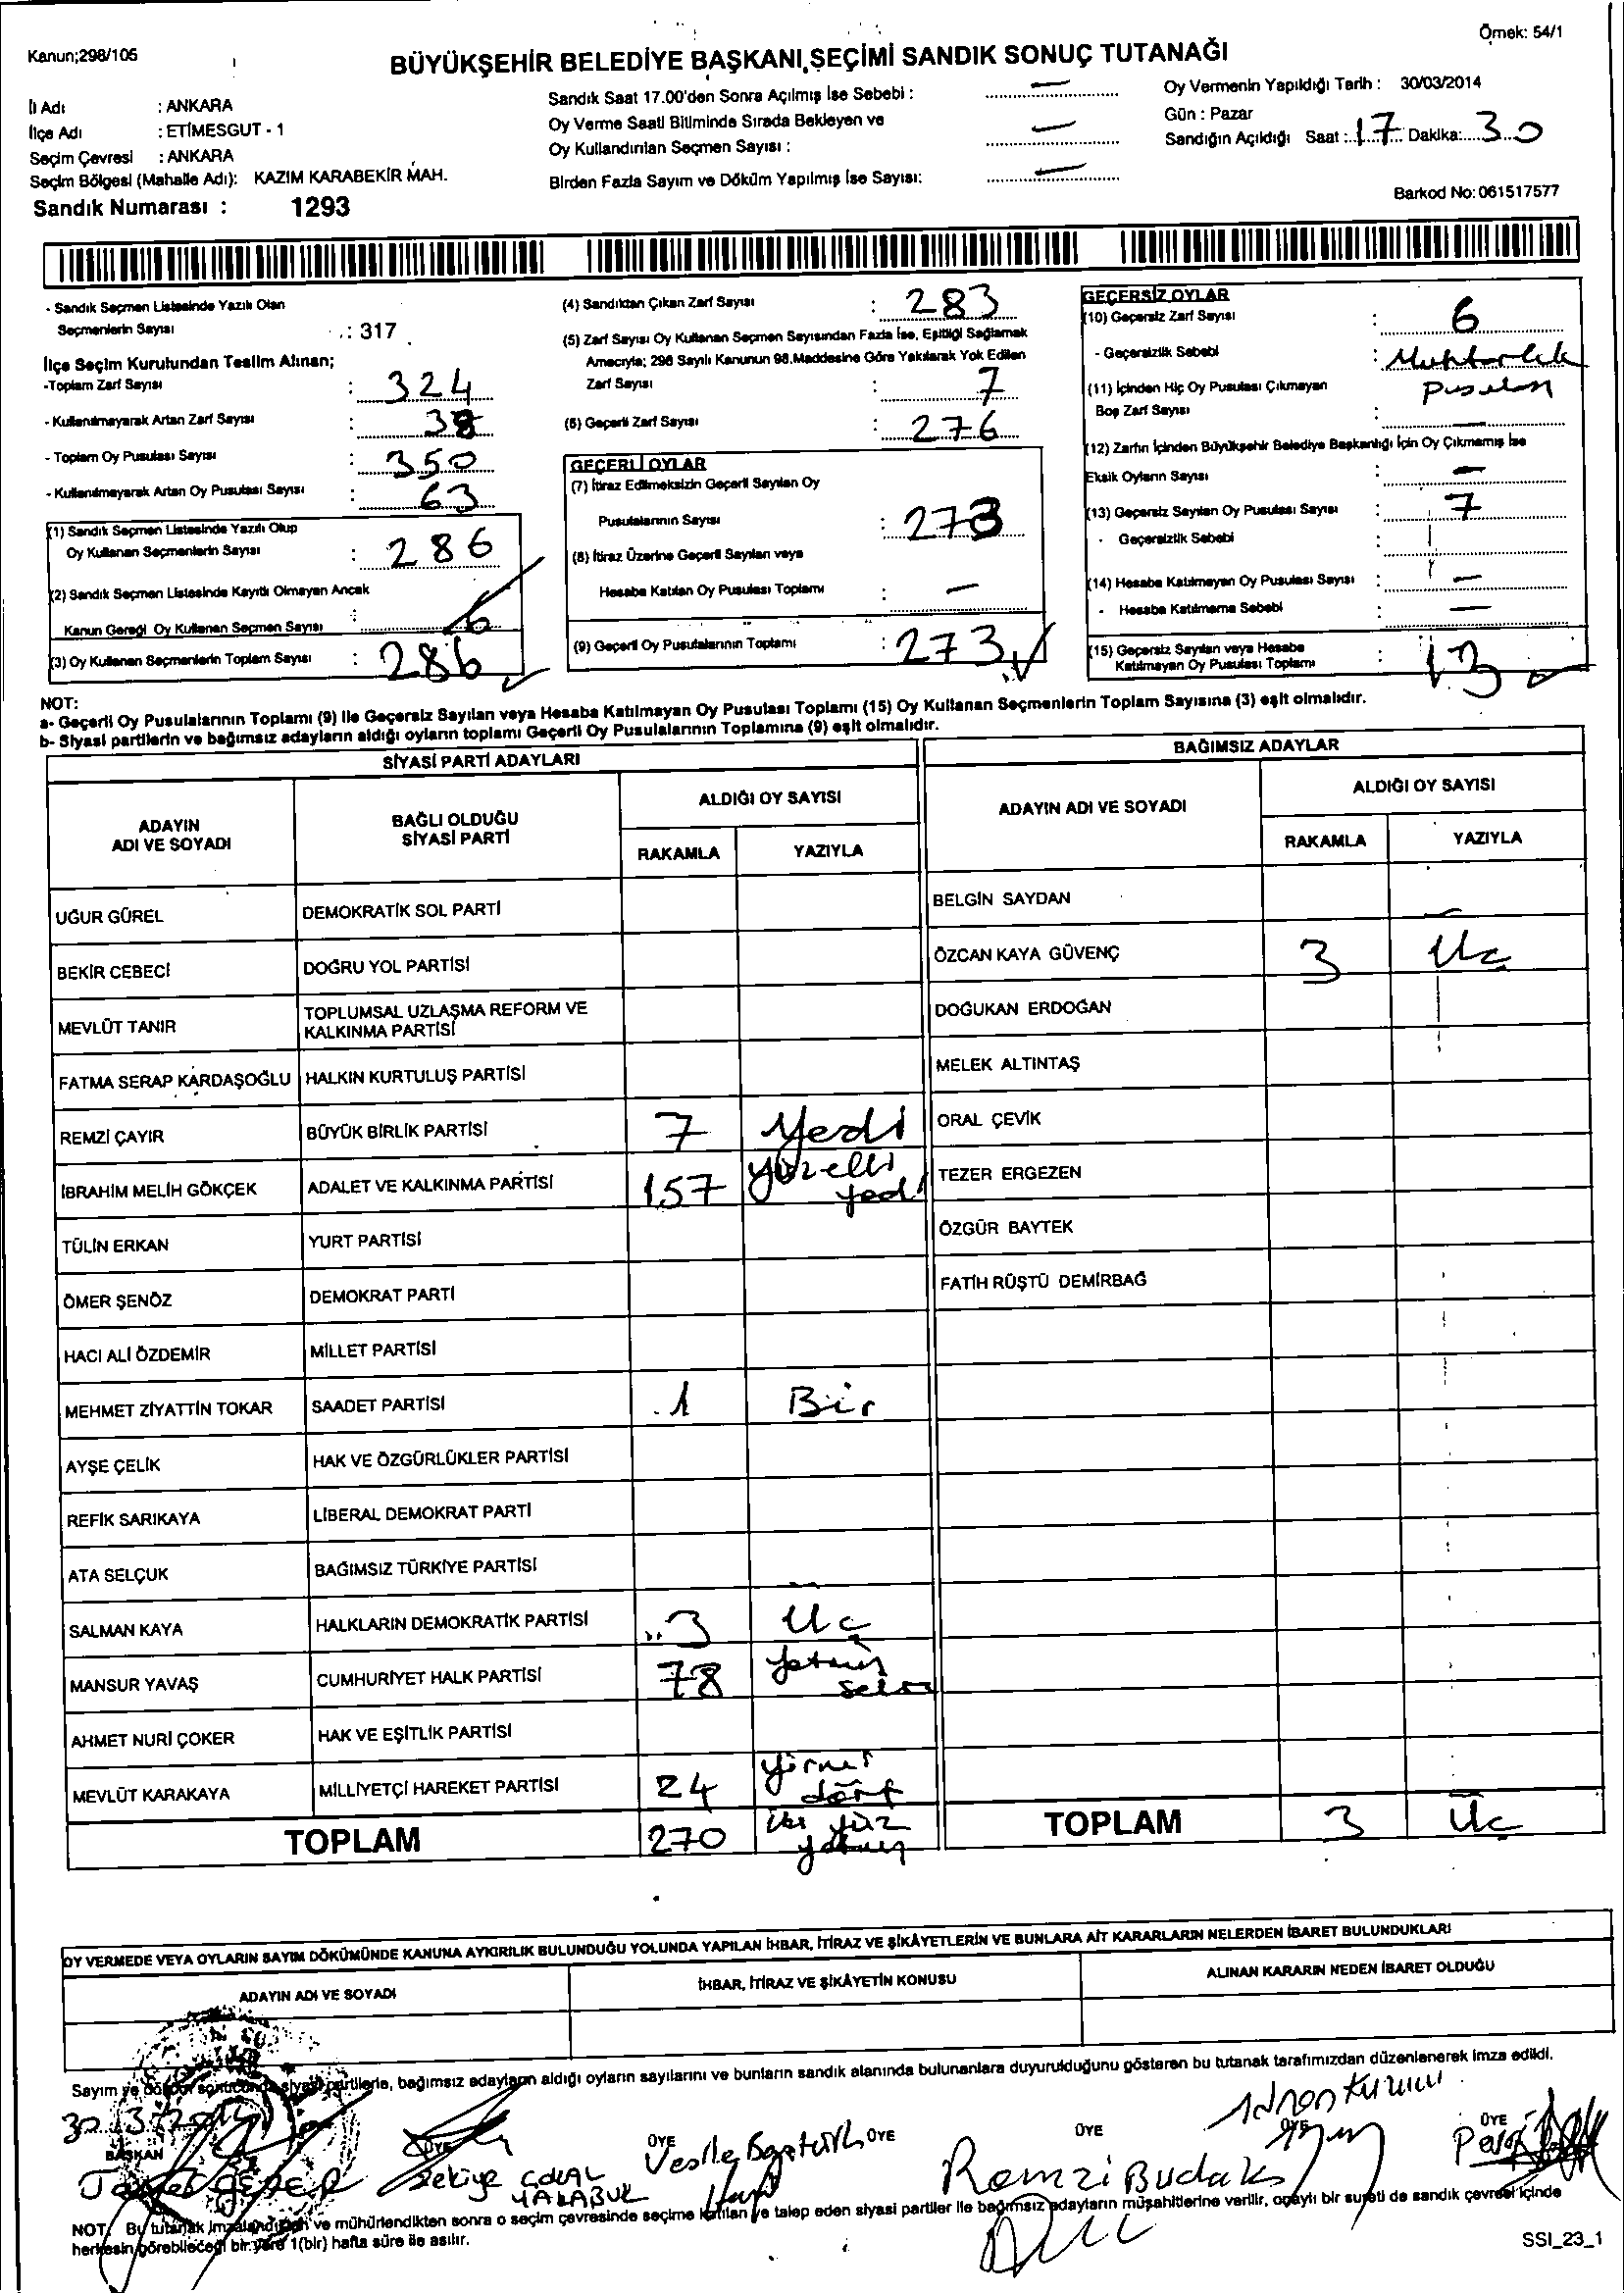 Örnek: 54/1
Kanun;298/105
BÜYÜKŞEHİR BELEDİYE BAŞKANI SEÇİMİ SANDIK SONUÇ TUTANAĞI
İl Adı : ANKARA
İlçe Adı : ETİMESGUT - 1
Seçim Çevresi : ANKARA
Seçim Bölgesi (Mahalle Adı): KAZIM KARABEKİR MAH.
Sandık Numarası : 1293
Sandık Saat 17.00'den Sonra Açılmış İse Sebebi : —
Oy Verme Saati Bitiminde Sırada Bekleyen ve
Oy Kullandırılan Seçmen Sayısı : —
Birden Fazla Sayım ve Döküm Yapılmış İse Sayısı: —
Oy Vermenin Yapıldığı Tarih : 30/03/2014
Gün : Pazar
Sandığın Açıldığı Saat : 17 Dakika: 30
Barkod No: 061517577
- Sandık Seçmen Listesinde Yazılı Olan
Seçmenlerin Sayısı : 317
İlçe Seçim Kurulundan Teslim Alınan;
-Toplam Zarf Sayısı : 324
- Kullanılmayarak Artan Zarf Sayısı : 38
- Toplam Oy Pusulası Sayısı : 350
- Kullanılmayarak Artan Oy Pusulası Sayısı : 63
(1) Sandık Seçmen Listesinde Yazılı Olup
Oy Kullanan Seçmenlerin Sayısı : 286
(2) Sandık Seçmen Listesinde Kayıtlı Olmayan Ancak
Kanun Gereği Oy Kullanan Seçmen Sayısı :
(3) Oy Kullanan Seçmenlerin Toplam Sayısı : 286
(4) Sandıktan Çıkan Zarf Sayısı : 283
(5) Zarf Sayısı Oy Kullanan Seçmen Sayısından Fazla İse, Eşitliği Sağlamak
Amacıyla; 298 Sayılı Kanunun 98.Maddesine Göre Yakılarak Yok Edilen
Zarf Sayısı : 7
(6) Geçerli Zarf Sayısı : 276
GEÇERLİ OYLAR
(7) İtiraz Edilmeksizin Geçerli Sayılan Oy
Pusulalarının Sayısı : 273
(8) İtiraz Üzerine Geçerli Sayılan veya
Hesaba Katılan Oy Pusulası Toplamı : —
(9) Geçerli Oy Pusulalarının Toplamı : 273
GEÇERSİZ OYLAR
(10) Geçersiz Zarf Sayısı : 6
- Geçersizlik Sebebi : Muhtarlık
(11) İçinden Hiç Oy Pusulası Çıkmayan Pusulası
Boş Zarf Sayısı : —
(12) Zarfın İçinden Büyükşehir Belediye Başkanlığı İçin Oy Çıkmamış İse
Eksik Oyların Sayısı : —
(13) Geçersiz Sayılan Oy Pusulası Sayısı : 7
- Geçersizlik Sebebi :
(14) Hesaba Katılmayan Oy Pusulası Sayısı : —
- Hesaba Katılmama Sebebi : —
(15) Geçersiz Sayılan veya Hesaba
Katılmayan Oy Pusulası Toplamı : 13
NOT:
a- Geçerli Oy Pusulalarının Toplamı (9) ile Geçersiz Sayılan veya Hesaba Katılmayan Oy Pusulası Toplamı (15) Oy Kullanan Seçmenlerin Toplam Sayısına (3) eşit olmalıdır.
b- Siyasi partilerin ve bağımsız adayların aldığı oyların toplamı Geçerli Oy Pusulalarının Toplamına (9) eşit olmalıdır.
SİYASİ PARTİ ADAYLARI
ADAYIN ADI VE SOYADI BAĞLI OLDUĞU SİYASİ PARTİ ALDIĞI OY SAYISI
RAKAMLA YAZIYLA
UĞUR GÜREL DEMOKRATİK SOL PARTİ
BEKİR CEBECİ DOĞRU YOL PARTİSİ
MEVLÜT TANIR TOPLUMSAL UZLAŞMA REFORM VE KALKINMA PARTİSİ
FATMA SERAP KARDAŞOĞLU HALKIN KURTULUŞ PARTİSİ
REMZİ ÇAYIR BÜYÜK BİRLİK PARTİSİ 7 Yedi
İBRAHİM MELİH GÖKÇEK ADALET VE KALKINMA PARTİSİ 157 yüzelli yedi
TÜLİN ERKAN YURT PARTİSİ
ÖMER ŞENÖZ DEMOKRAT PARTİ
HACI ALİ ÖZDEMİR MİLLET PARTİSİ
MEHMET ZİYATTİN TOKAR SAADET PARTİSİ 1 Bir
AYŞE ÇELİK HAK VE ÖZGÜRLÜKLER PARTİSİ
REFİK SARIKAYA LİBERAL DEMOKRAT PARTİ
ATA SELÇUK BAĞIMSIZ TÜRKİYE PARTİSİ
SALMAN KAYA HALKLARIN DEMOKRATİK PARTİSİ 3 Üç
MANSUR YAVAŞ CUMHURİYET HALK PARTİSİ 78 yetmiş sekiz
AHMET NURİ ÇOKER HAK VE EŞİTLİK PARTİSİ
MEVLÜT KARAKAYA MİLLİYETÇİ HAREKET PARTİSİ 24 yirmi dört
TOPLAM 270 iki yüz yetmiş
BAĞIMSIZ ADAYLAR
ADAYIN ADI VE SOYADI ALDIĞI OY SAYISI
RAKAMLA YAZIYLA
BELGİN SAYDAN
ÖZCAN KAYA GÜVENÇ 3 Üç
DOĞUKAN ERDOĞAN
MELEK ALTINTAŞ
ORAL ÇEVİK
TEZER ERGEZEN
ÖZGÜR BAYTEK
FATİH RÜŞTÜ DEMİRBAĞ
TOPLAM 3 Üç
OY VERMEDE VEYA OYLARIN SAYIM DÖKÜMÜNDE KANUNA AYKIRILIK BULUNDUĞU YOLUNDA YAPILAN İHBAR, İTİRAZ VE ŞİKÂYETLERİN VE BUNLARA AİT KARARLARIN NELERDEN İBARET BULUNDUKLARI
ADAYIN ADI VE SOYADI İHBAR, İTİRAZ VE ŞİKÂYETİN KONUSU ALINAN KARARIN NEDEN İBARET OLDUĞU
Sayım ve döküm sonucunda siyasi partilerle, bağımsız adayların aldığı oyların sayılarını ve bunların sandık alanında bulunanlara duyurulduğunu gösteren bu tutanak tarafımızdan düzenlenerek imza edildi.
30/3/2014
BAŞKAN ÜYE ÜYE ÜYE ÜYE ÜYE ÜYE
Zekiye Remzi Budak
NOT: Bu tutanak imzalandıktan ve mühürlendikten sonra o seçim çevresinde seçime katılan ve talep eden siyasi partiler ile bağımsız adayların müşahitlerine verilir, onaylı bir sureti de sandık çevresi içinde
herkesin görebileceği bir yere 1(bir) hafta süre ile asılır.
SSI_23_1